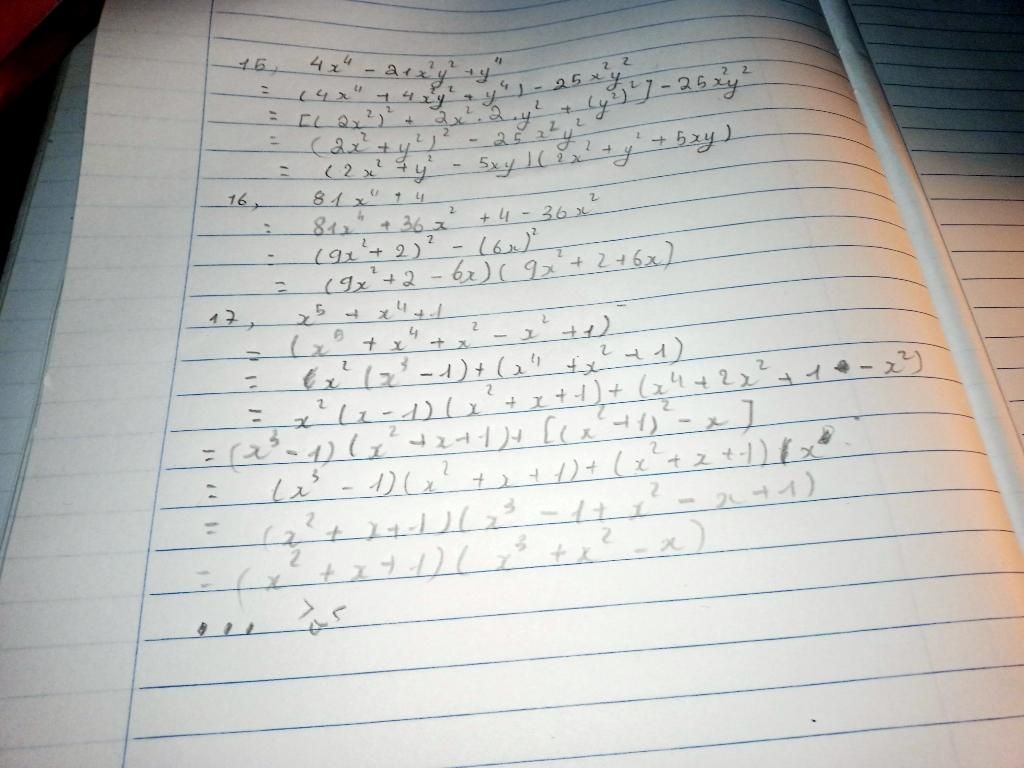 15, 4x⁴ - 21x²y² + y⁴
= (4x⁴ + 4x²y² + y⁴) - 25x²y²
= [(2x²)² + 2x².2.y² + (y²)²] - 25x²y²
= (2x² + y²)² - 25x²y²
= (2x² + y² - 5xy)(2x² + y² + 5xy)
16, 81x⁴ + 4
= 81x⁴ + 36x² + 4 - 36x²
= (9x² + 2)² - (6x)²
= (9x² + 2 - 6x)(9x² + 2 + 6x)
17, x⁵ + x⁴ + 1
= (x⁵ + x⁴ + x² - x² + 1)
= x²(x³ - 1) + (x⁴ + x² + 1)
= x²(x - 1)(x² + x + 1) + (x⁴ + 2x² + 1 - x²)
= (x³ - 1)(x² + x + 1) + [(x² + 1)² - x]
= (x³ - 1)(x² + x + 1) + (x² + x + 1)(x
= (x² + x + 1)(x³ - 1 + x² - x + 1)
= (x² + x + 1)(x³ + x² - x)
...